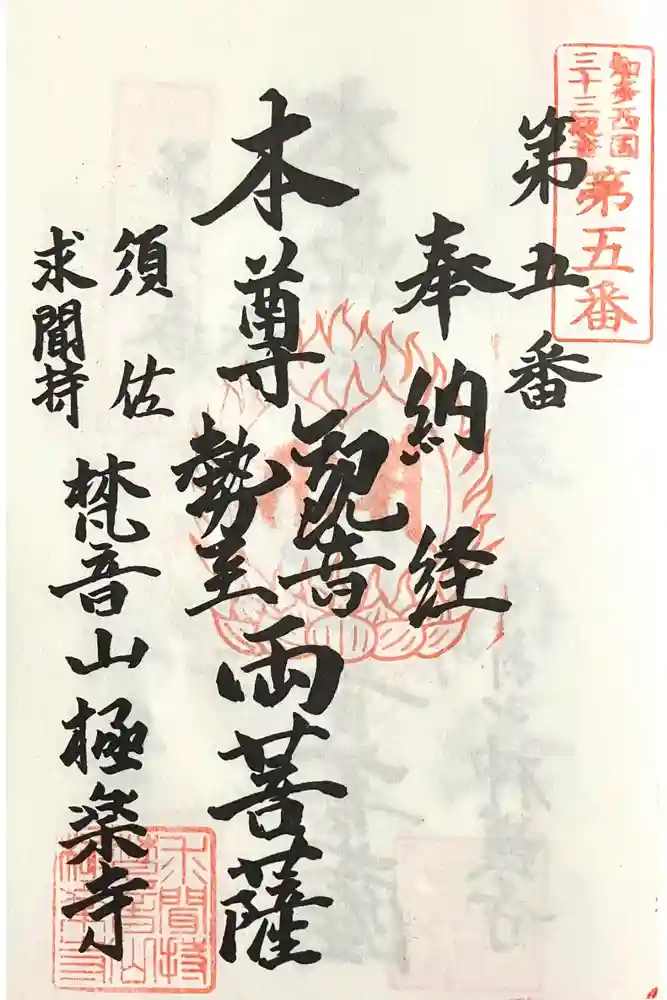 知多西国
三十三観音
第五番
第五番
奉納経
本尊
観音
勢至
両菩薩
須佐
求聞持
梵音山極楽寺
求聞持
梵音山
極楽寺